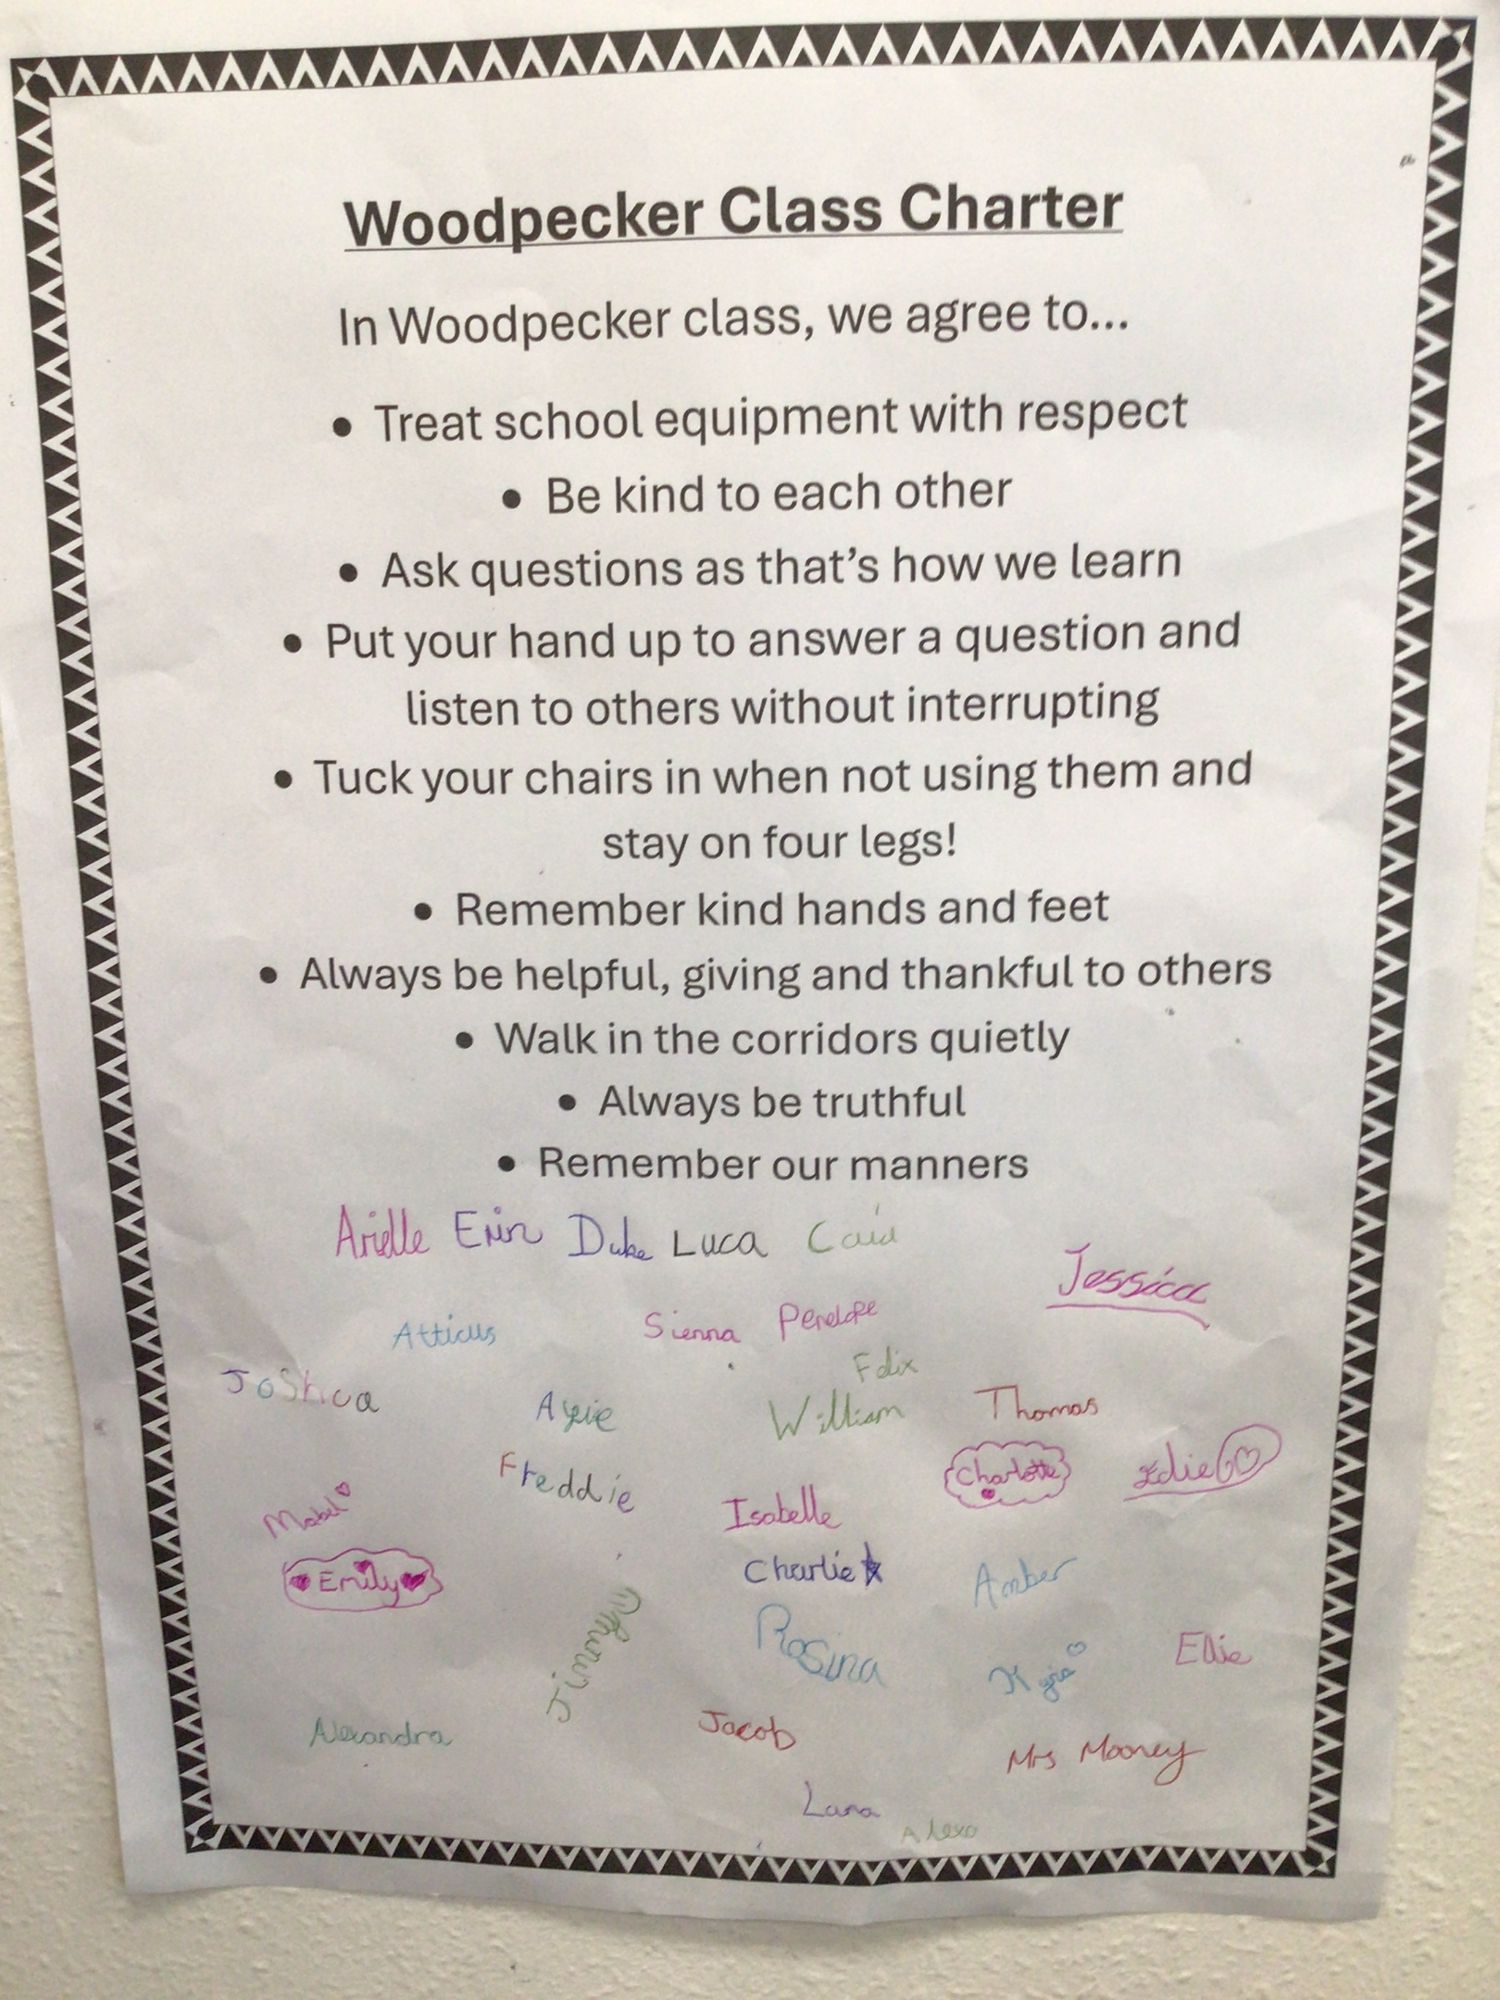 Woodpecker Class Charter
In Woodpecker class, we agree to...
• Treat school equipment with respect
• Be kind to each other
• Ask questions as that's how we learn
• Put your hand up to answer a question and
listen to others without interrupting
• Tuck your chairs in when not using them and
stay on four legs!
• Remember kind hands and feet
• Always be helpful, giving and thankful to others
• Walk in the corridors quietly
• Always be truthful
• Remember our manners
Arielle Erin Duke Luca
Jessica
Atticus Sienna Penelope
Felix
Joshua William Thomas
Freddie Charlotte Edie
Mabel Isabelle
Emily Charlie Amber
Jimmy Rosina Ellie
Alexandra Jacob Mrs Mooney
Lana